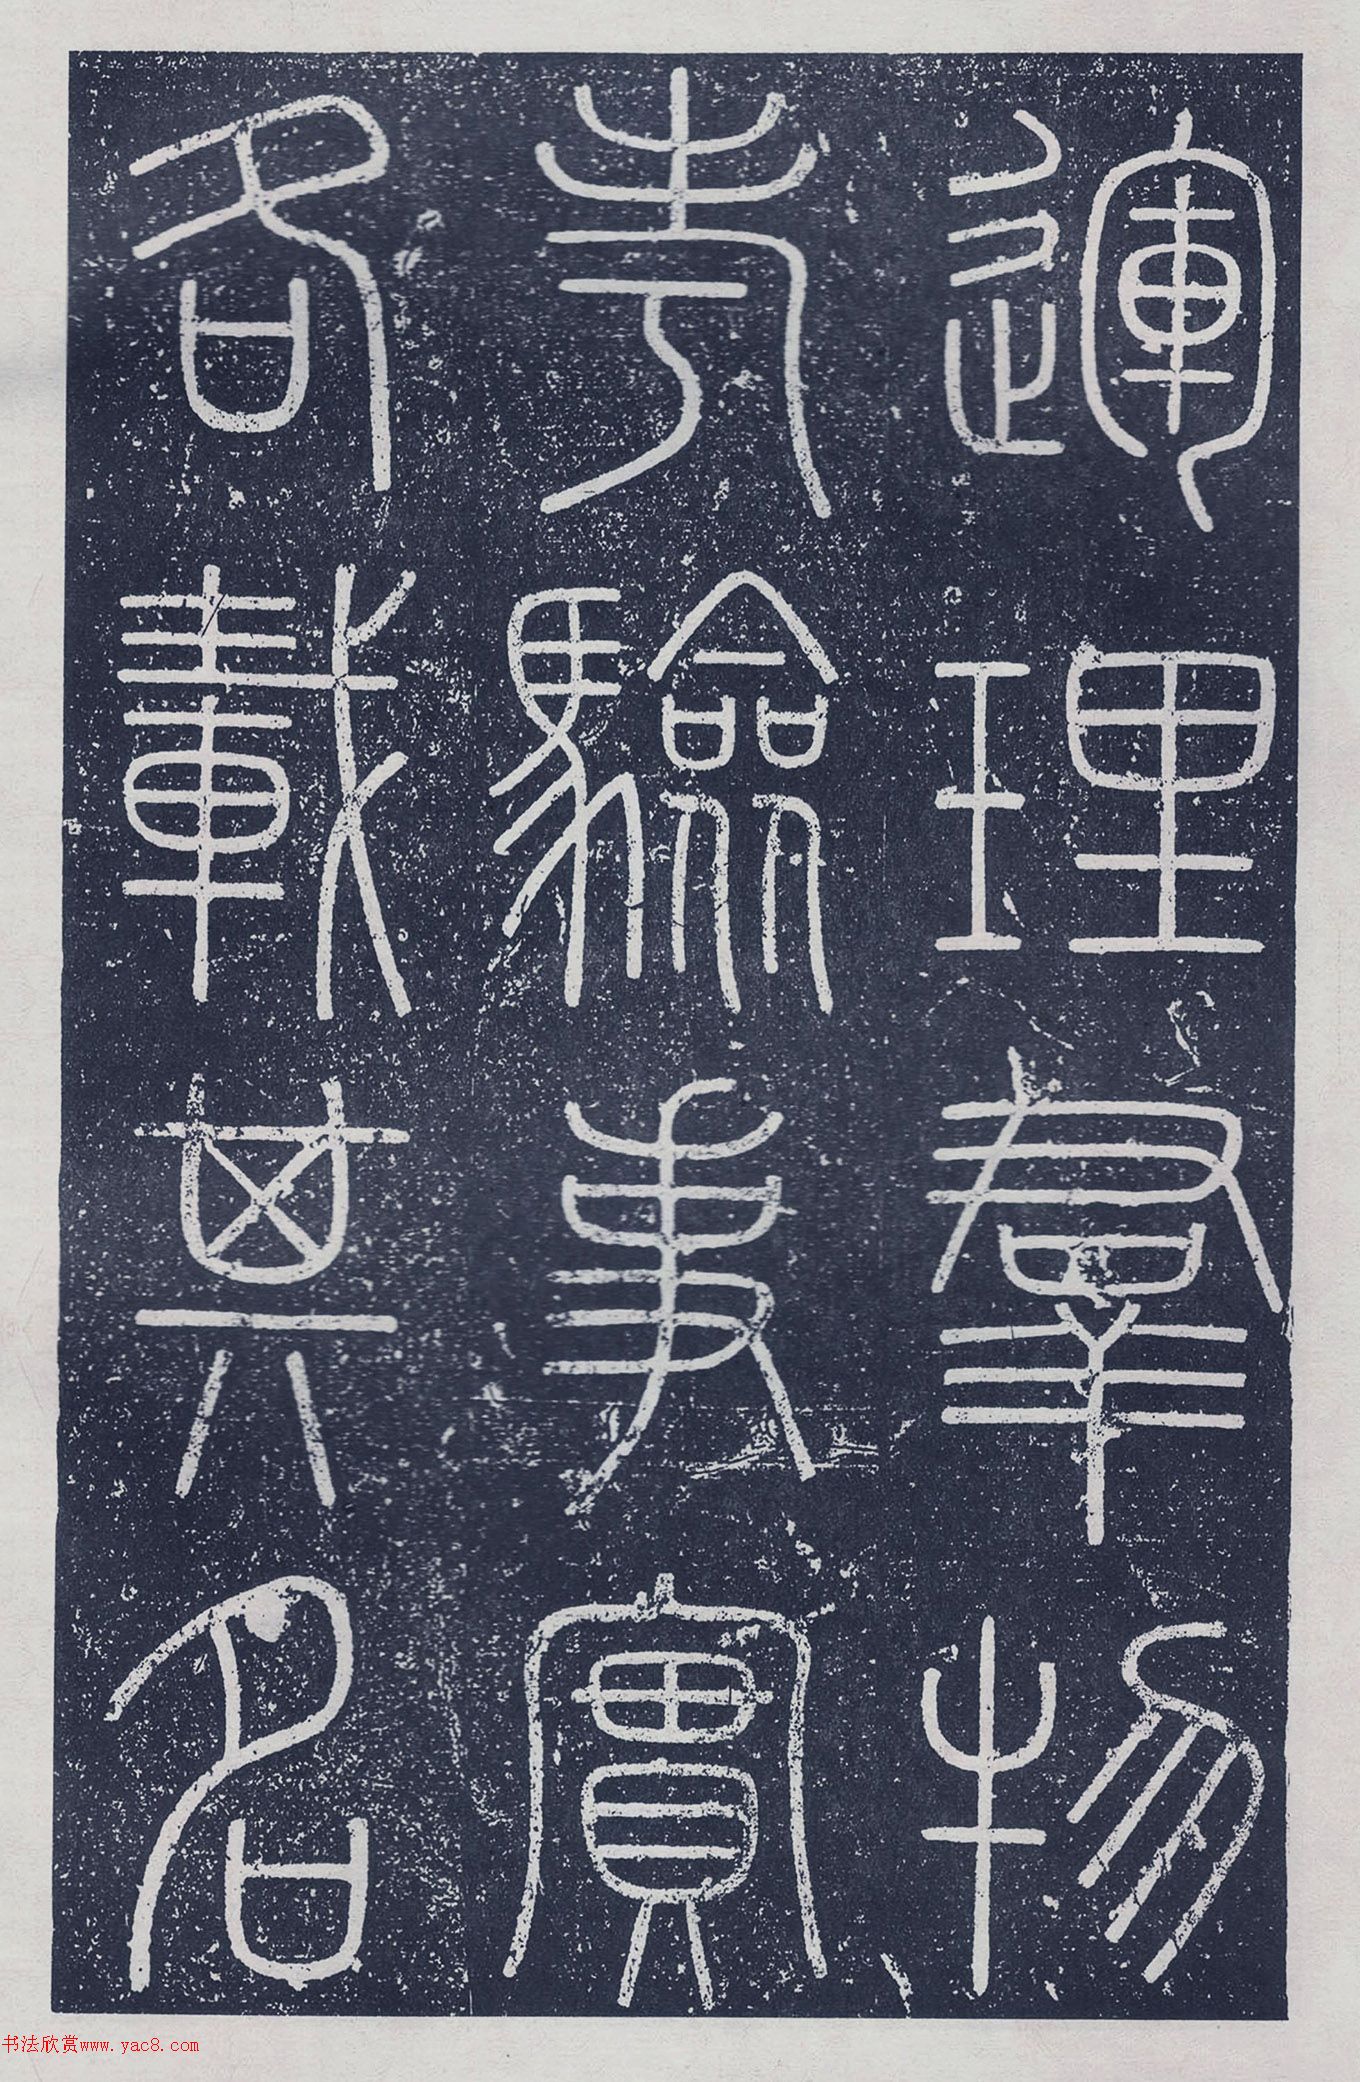 運理羣物
考驗事實
各載其名
书法欣赏www.yac8.com